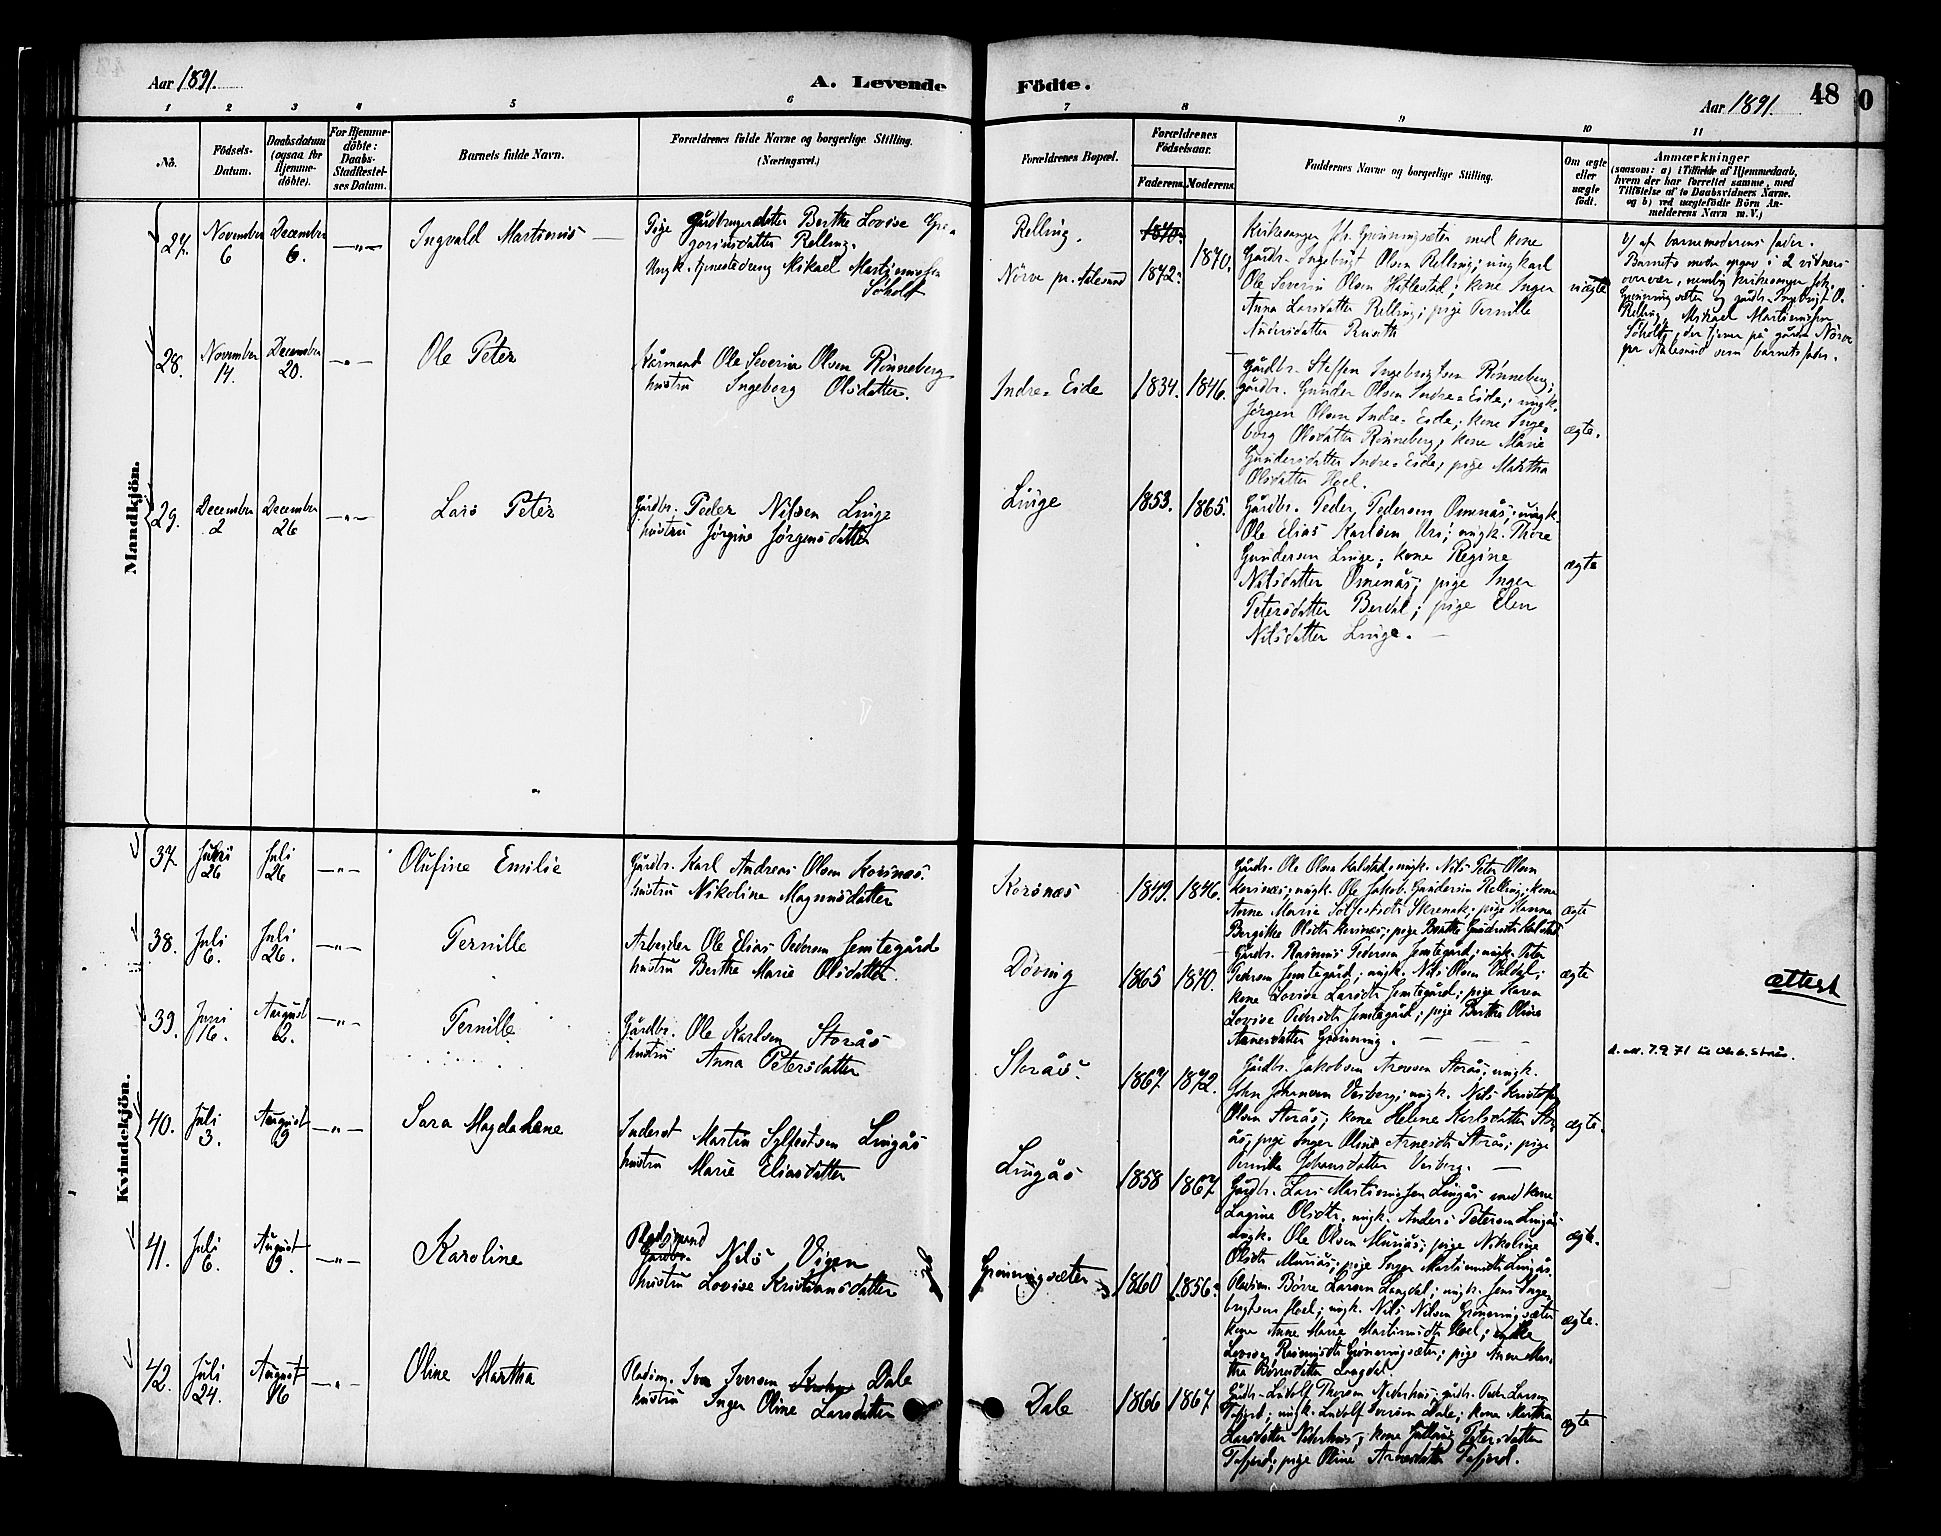 Aar 1891.
A. Levende
Födte.
Aar 1891.
48
0
1 2 3 4 5 6 7 8 9 10 11
No.
Födsels-
Datum.
Daabsdatum
(ogsaa for
Hjemme-
döbte).
For Hjemme-
döbte:
Daabs-
Stadfæstel-
ses Datum.
Barnets fulde Navn.
Forældrenes fulde Navne og borgerlige Stilling.
(Næringsvei.)
Forældrenes Bopæl.
Forældrenes
Födselsaar.
Faderens.
Moderens.
Faddernes Navne og borgerlige Stilling.
Om ægte
eller
uægte
födt.
Anmærkninger
(saasom: a) i Tilfælde af Hjemmedaab,
hvem der har forrettet samme, med
Tilföielse af to Daabsvidners Navne.
og b) ved uægtefödte Börn An-
melderens Navn m. V.)
Mandkjön.
27.
November
6
December
6.
Ingvald Martinus
Pige Gårdbrugerdatter Berthe Lovise Gre-
goriusdatter Relling.
Ungk. tjenestedreng Mikael Martinussen
Söholt
Relling.
Nörve pr. Aalesund
1870.
1872.
1870.
Kirkesanger Joh. Grönningsæter med kone
Gårdb. Ingebrigt Olsen Relling; ungkarl
Ole Severin Olsen Hallestad; kone Inger
Anna Larsdatter Relling; pige Pernille
Andersdatter
uægte
af barnemoderens fader.
Barnets moder opgav i 2 vidners
overvær, nemlig kirkesanger Joh.
Grönningsæter og gårdb. Ingebrigt O.
Relling, Mikael Martinussen
Söholt, der tjener på gården Nörve
pr Aalesund som barnets fader.
28.
November
14.
December
20.
Ole Peter
Kårmand Ole Severin Olsen Rönneberg
hustru Ingeborg Olsdatter.
Indre-Eide
1834.
1846.
Gårdbr. Steffen Ingebrigtsen Rönneberg;
gårdbr. Gunder Olsen Indre-Eide; ungk.
Jörgen Olsen Indre-Eide; kone Inge-
borg Olsdatter Rönneberg; kone Marie
Gundersdatter Indre-Eide; pige Martha
Olsdatter Hoel.
ægte.
29.
December
2
December
26
Lars Peter
Gårdbr. Peder Nilsen Linge
hustru Jörgine Jörgensdatter
Linge
1853.
1865.
Gårdbr. Peder Pedersen Omenås; ungk.
Ole Elias Karlsen Uri; ungk. Thore
Gundersen Linge; kone Regine
Nilsdatter Omenås; pige Inger
Petersdatter Berdal; pige Elen
Nilsdatter Linge.
ægte
Kvindekjön.
37
Juli
26
Olufine Emilie
Gårdbr. Karl Andreas Olsen Korsnæs.
hustru Nikoline Magnusdatter
Korsnæs
1849.
1846.
Gårdbr. Ole Olsen Kalstad; ungk. Nils Peter Olsen
Korsnæs; ungk. Ole Jakob Gundersen Relling; kone
Anne Marie Sylfestsdtr Skrenak; pige Hanna
Bergitte Olsdtr Korsnæs; pige Berthe Kalstad
ægte
38.
Juli
6.
Juli
26.
Pernille
Arbeider Ole Elias Pedersen Jemtegård
hustru Berthe Marie Olsdatter
Döving
1865
1870.
Gårdbr. Rasmus Pedersen Jemtegård; ungk. Peter
Pedersen Jemtegård; ungk. Nils Olsen Valdal;
kone Lovise Larsdtr Jemtegård; pige Karen
Lovise Pedersdtr Jemtegård; pige Berthe Oline
Aanensdatter Grönning.
ægte
attest
39.
Juni
16.
August
2.
Pernille
Gårdbr. Ole Karlsen Storås
hustru Anna Petersdatter
Storås.
1867.
1872.
Gårdbr. Jakobsen Storås; ungk.
John Johansen Vesberg; ungk. Nils Kristoffer
Olsen Storås; kone Helene Karlsdatter Stor-
ås; pige Inger Oline Arnesdtr Storås; pige
Pernille Johansdatter Vesberg.
ægte.
40.
Juli
3.
August
9
Sara Magdalene
Inderst Martin Sylfestsen Lingås
hustru Marie Eliasdatter
Lingås
1858
1867
Gårdbr. Lars Martinussen Lingås med kone
Lagine Olsdtr. ungk. Anders Petersen Lingås
ungk. Ole Olsen Muriås; pige Nikoline
Olsdtr Muriås; pige Inger Martinusdtr Lingås.
ægte.
41.
Juli
6.
August
9.
Karoline
Pladsmand
Gårdbr.
Nils Vigen
hustru Lovise Kristiansdatter
Grönningsæter
1860
1856.
Pladsm. Börre Larsen Langdal; ungk. Jens Inge-
brigtsen Hoel; ungk. Nils Nilsen Grönningsæter
kone Anne Marie Martinusdtr Hoel; enke
Lovise Rasmusdtr Grönningsæter; pige Anne Mar-
the Börresdatter Langdal.
ægte.
42.
Juli
24.
August
16
Oline Martha
Pladsm. Iver Iversen Dale
hustru Inger Oline Larsdatter
Dale
1866
1867
Gårdb. Ludolf Thoresen Nederhus; gårdb. Peder Larsen
Tafjord; ungk. Ludolf Iversen Dale; kone Martha
Larsdatter Nederhus; kone Petersdatter
Tafjord; pige Oline Arnesdatter Tafjord.
ægte